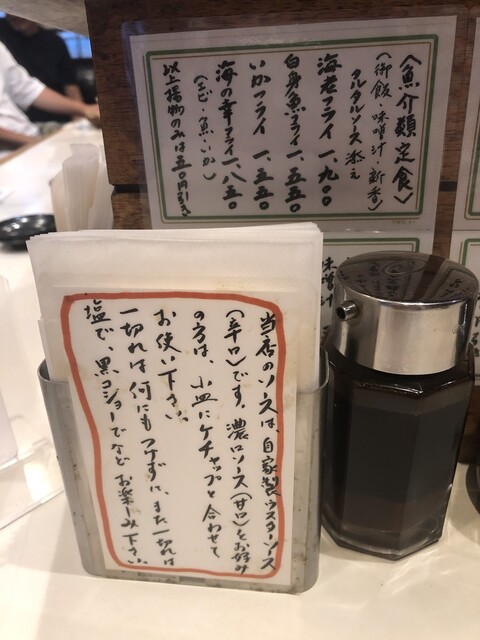 〈魚介類定食〉
(御飯・味噌汁・新香)
タルタルソース添え
海老フライ 一、九〇〇
白身魚フライ 一、五五〇
いかフライ 一、五五〇
海の幸フライ 一、八五〇
(エビ・魚・いか)
以上揚物のみは五〇円引き
味噌汁
当店のソースは、自家製ウスターソース
(辛口)です。濃口ソース(甘口)をお好み
の方は、小皿にケチャップと合わせて
お使い下さい。
一切れは何にもつけずに、また一切れは
塩で、黒コショーでなどお楽しみ下さい。